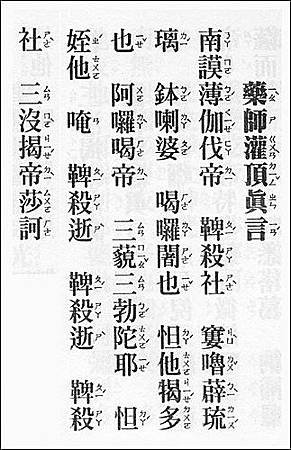 藥師灌頂眞言
南謨薄伽伐帝 鞞殺社 窶嚕薜琉
璃 鉢喇婆 喝囉闍也 怛他揭多
也 阿囉喝帝 三藐三勃陀耶 怛
姪他 唵 鞞殺逝 鞞殺逝 鞞殺
社 三沒揭帝莎訶